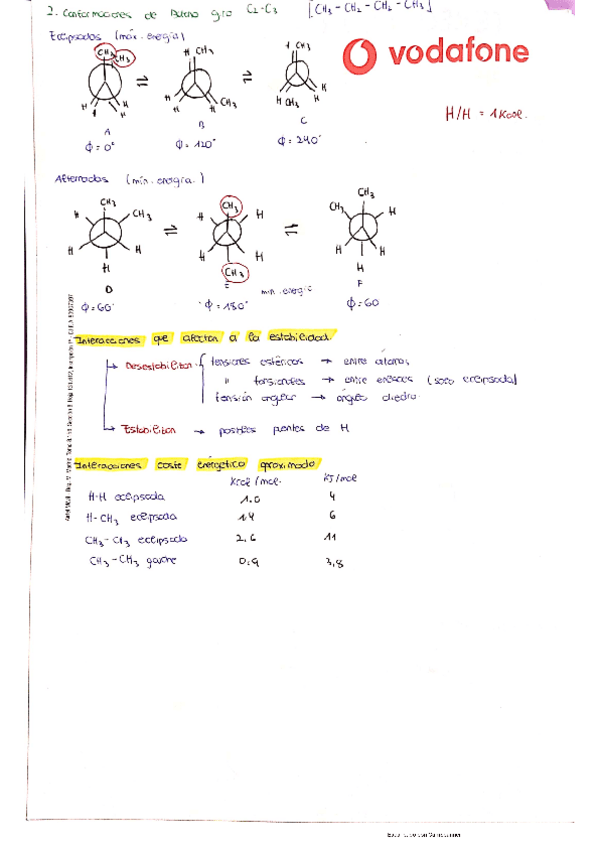 2. Conformaciones de Butano giro C2-C3 [CH3 - CH2 - CH2 - CH3]
Eclipsadas (máx. energía)
vodafone
CH3 CH3 H CH3 H CH3
H H H H H CH3 H CH3 H
H/H = 1 Kcal.
A B C
ϕ = 0° ϕ = 120° ϕ = 240°
Alternadas (mín. energía.)
CH3 CH3 CH3
H CH3 H H CH3 H
H H H H H H
H CH3 H
D E mín. energía F
ϕ = 60° ϕ = 180° ϕ = 60
Interacciones que afectan a la estabilidad.
Desestabilizan tensiones estéricas → entre átomos
" torsionales → entre enlaces (solo eclipsada)
tensión angular → ángulo diedro
Estabilizan → posibles puentes de H
Interacciones coste energético aproximado
Kcal/mol. KJ/mol
H-H eclipsada 1.0 4
H-CH3 eclipsada 1.4 6
CH3-CH3 eclipsada 2,6 11
CH3-CH3 gauche 0.9 3,8